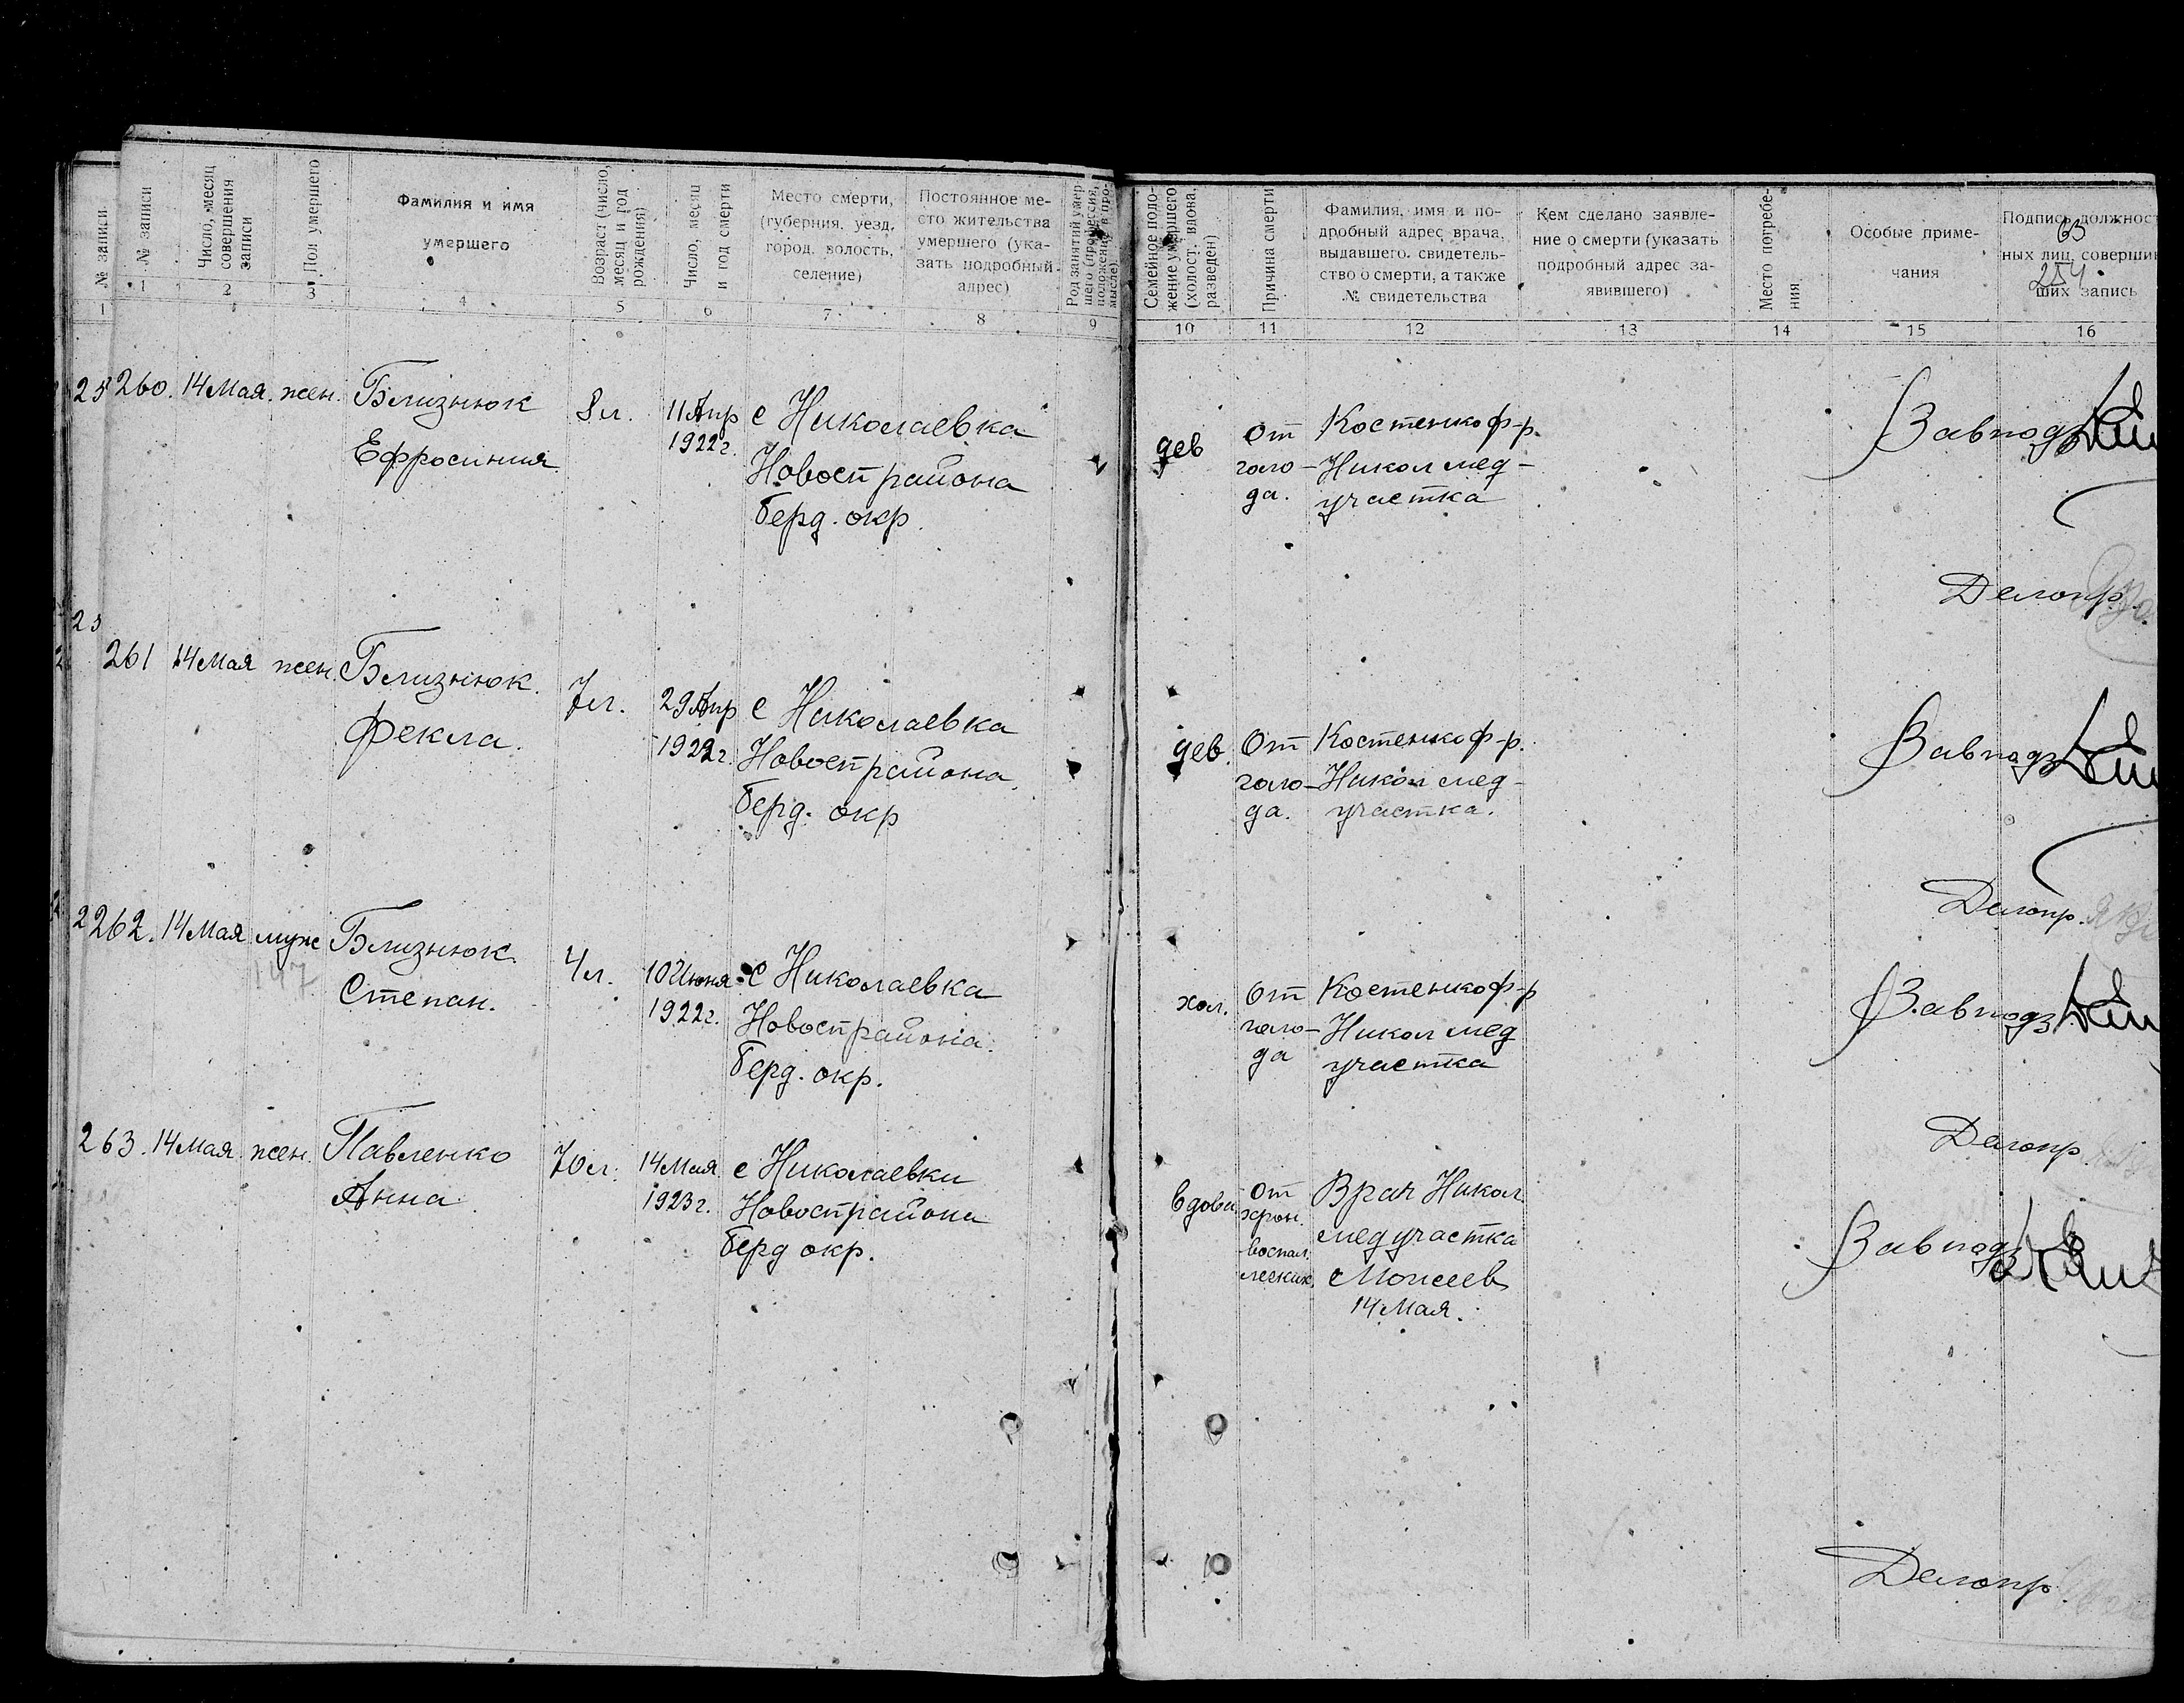 № записи
№ записи
Число, месяц совершения записи
Пол умершего
Фамилия и имя
умершего
Возраст (число, месяц и год рождения)
Число, месяц и год смерти
Место смерти,
(губерния, уезд,
город, волость,
селение)
Постоянное ме-
сто жительства
умершего (ука-
зать подробный
адрес)
Род занятий умер-
шего (профессия,
положение в про-
мысле)
Семейное поло-
жение умершего
(холост, вдова,
разведен)
Причина смерти
Фамилия, имя и по-
дробный адрес врача,
выдавшего, свидетель-
ство о смерти, а также
№ свидетельства
Кем сделано заявле-
ние о смерти (указать
подробный адрес за-
явившего)
Место погребе-
ния
Особые приме-
чания
Подпись должност
ных лиц, соверши
ших запись
63
254
1 1 2 3 4 5 6 7 8 9 10 11 12 13 14 15 16
25
260. 14 Мая. жен. Близнюк
Ефросиния
8 л.
11 Апр
1922 г.
с Николаевка
Новосп района
берд. окр.
дев
От
голо-
да.
Костенко ф-р.
Никол мед-
участка
Завподз
Делопр.
25
261 14 Мая жен. Близнюк.
Фекла.
7 л.
29 Апр
1922 г.
с Николаевка
Новосп района.
берд. окр
дев.
От
голо-
да.
Костенко ф-р.
Никол мед-
участка.
Завподз
Делопр.
2
262. 14 Мая муж Близнюк.
147
Степан.
4 л.
10 Июня
1922 г.
с Николаевка
Новосп района.
берд. окр.
хол.
От
голо-
да
Костенко ф-р
Никол мед
участка
Завподз
Делопр.
263. 14 Мая жен. Павленко
Анна
70 л.
14 Мая
1923 г.
с Николаевки
Новосп района
берд окр.
вдова
От
хрон.
воспал.
легких.
Врач Никол
мед участка
Моисеев
14 Мая.
Завподз
Делопр.